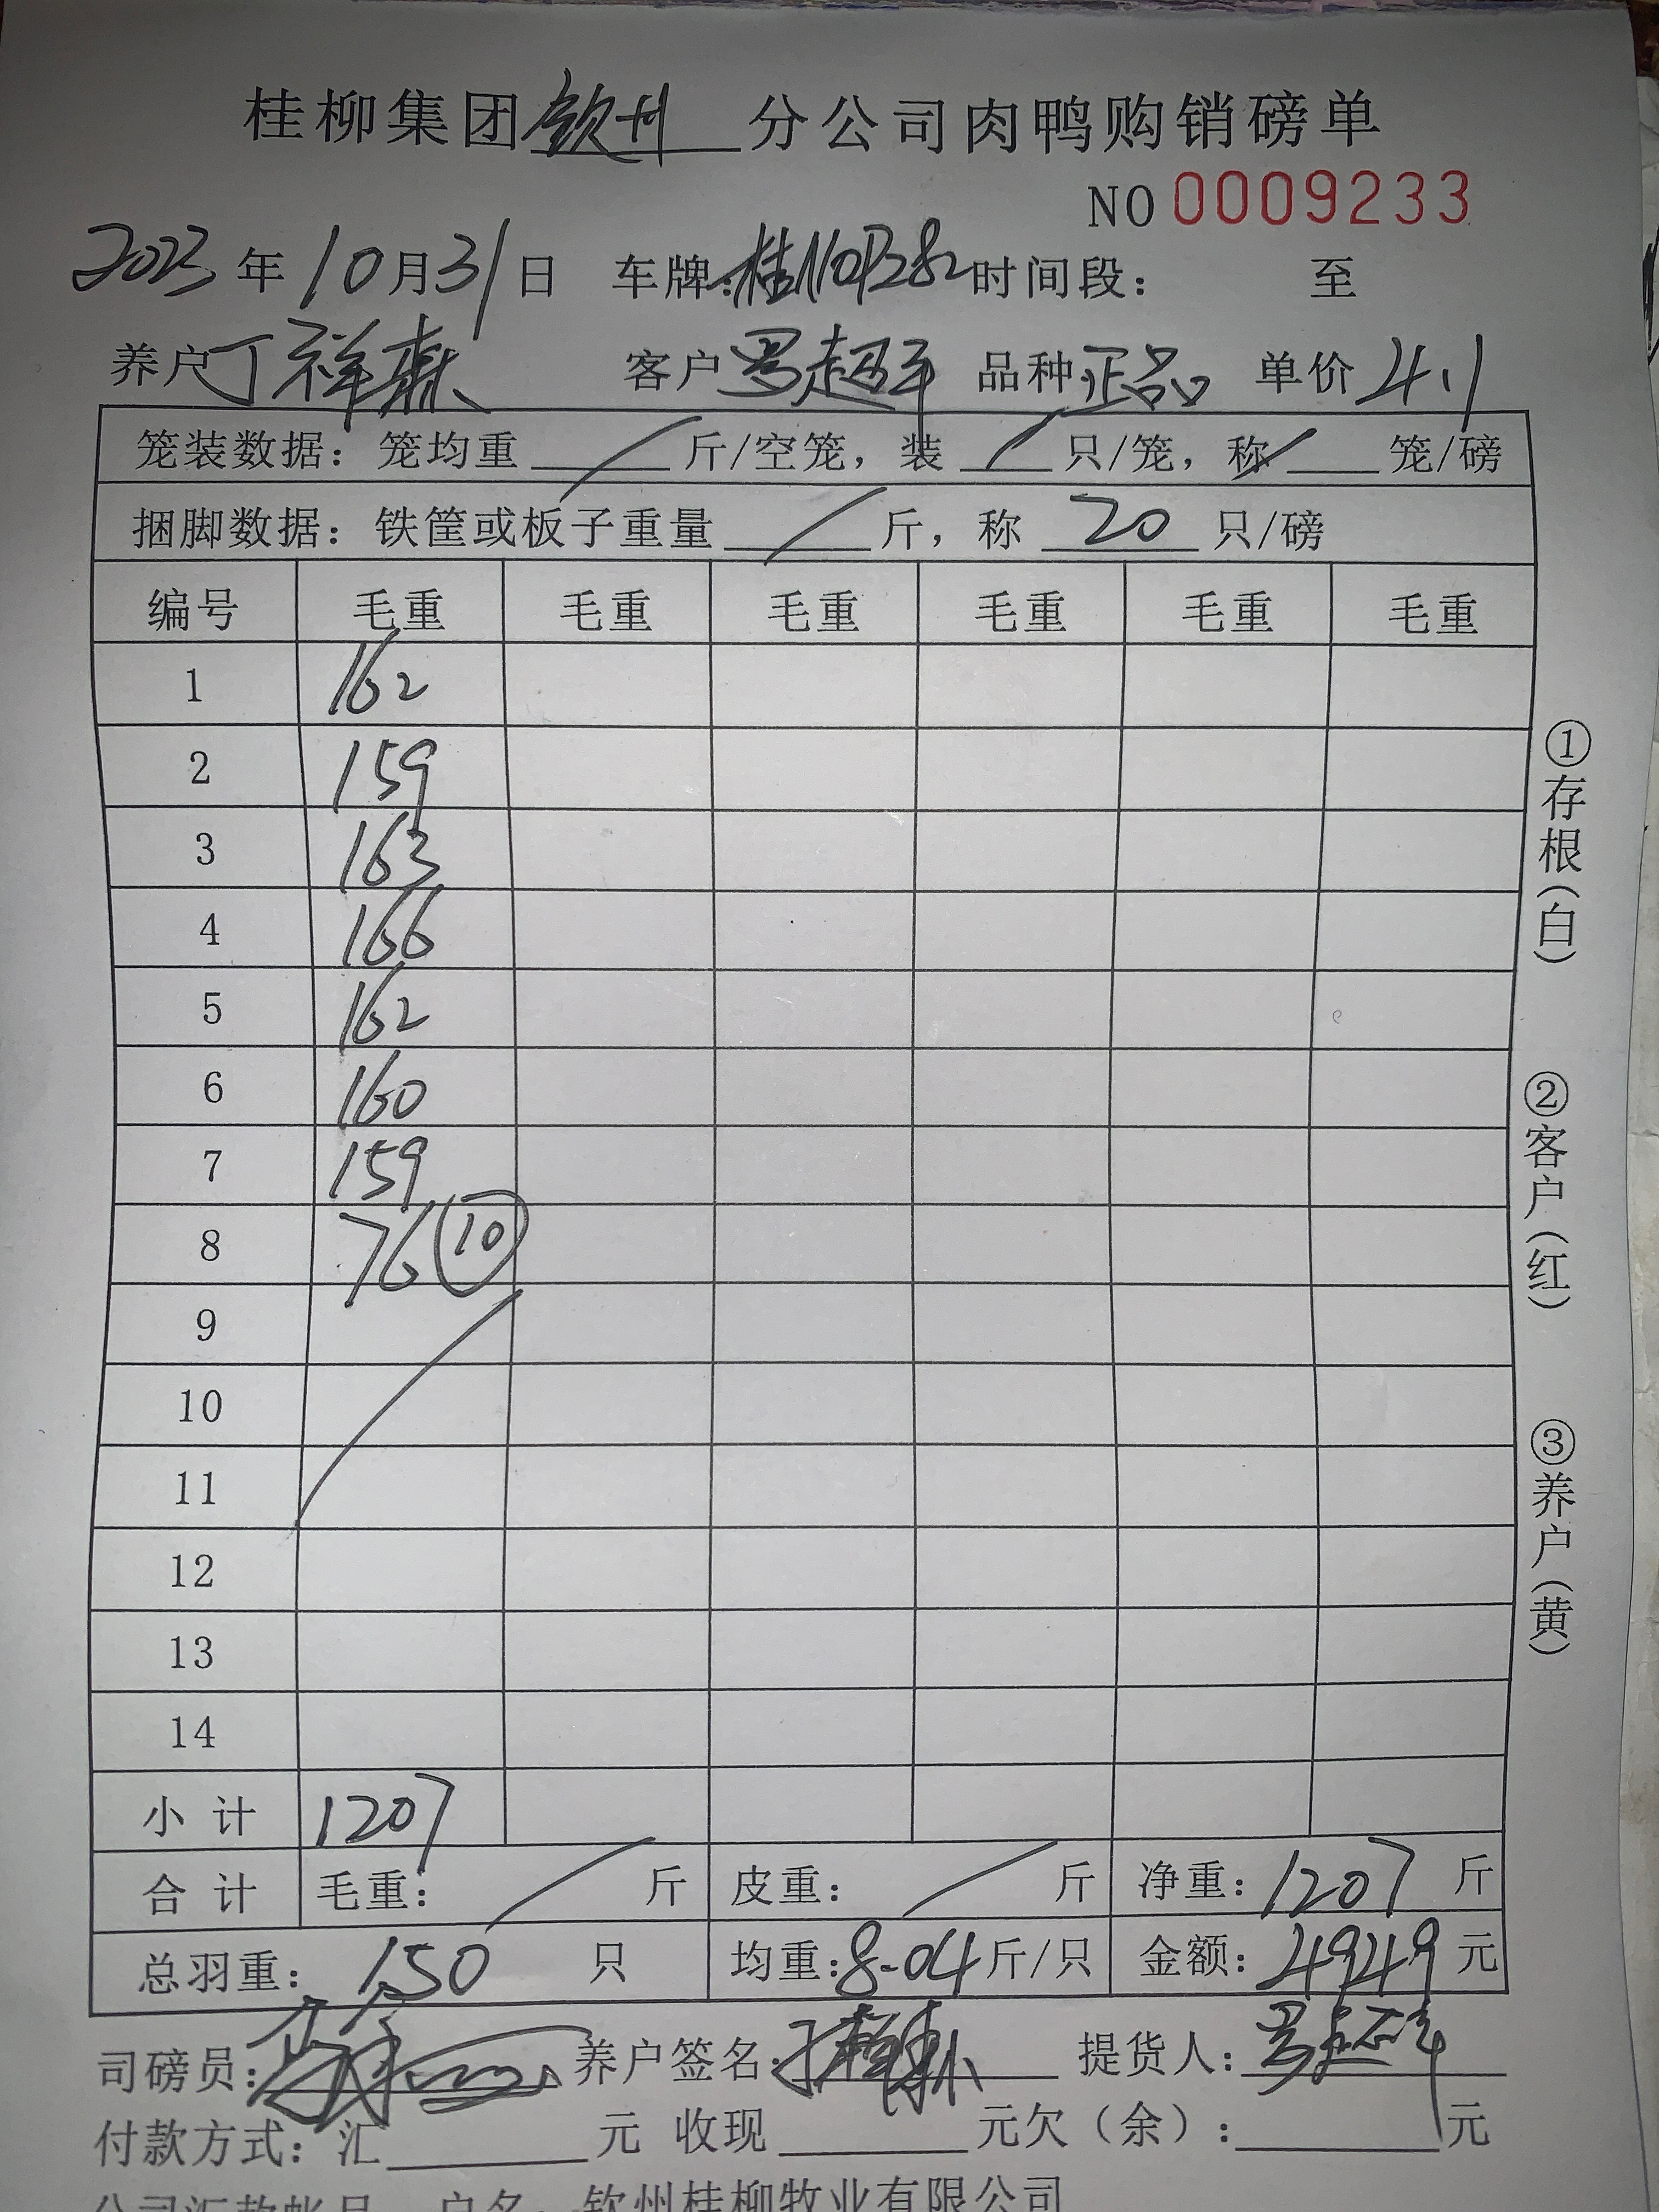 桂柳集团钦州分公司肉鸭购销磅单
NO 0009233
2023年10月31日 车牌: 时间段: 至
养户丁祥森 客户罗超平 品种正品 单价4.1
笼装数据: 笼均重/斤/空笼, 装/只/笼, 称/笼/磅
捆脚数据: 铁筐或板子重量/斤, 称20只/磅
编号 毛重 毛重 毛重 毛重 毛重 毛重
1 162
2 159
3 163
4 166
5 162
6 160
7 159
8 76 ⑩
9
10
11
12
13
14
小计 1207
合计 毛重: / 斤 皮重: / 斤 净重: 1207 斤
总羽重: 150 只 均重: 8.04 斤/只 金额: 4949 元
司磅员: 养户签名: 提货人:
付款方式: 汇____元 收现____元欠(余):____元
公司汇款帐号 户名 钦州桂柳牧业有限公司
①存根(白)
②客户(红)
③养户(黄)